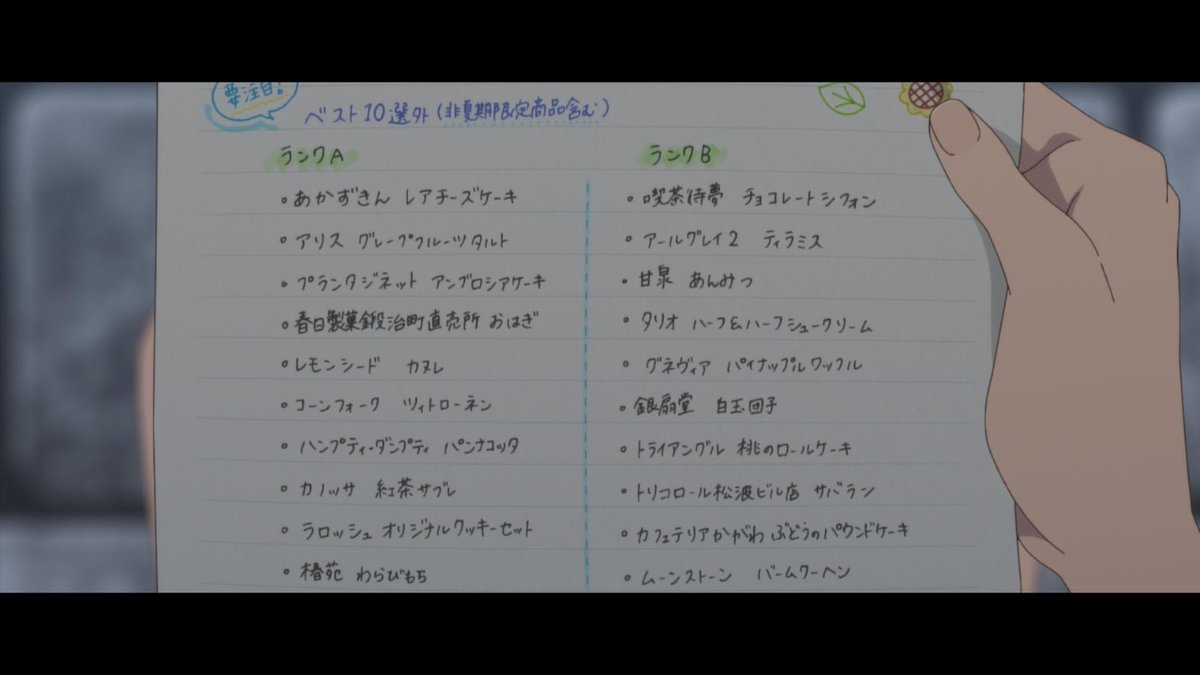 要注目!
ベスト10選外(非夏期限定商品含む)
ランクA
・あかずきん レアチーズケーキ
・アリス グレープフルーツタルト
・プランタジネット アンブロシアケーキ
・春日製菓鍛治町直売所 おはぎ
・レモンシード カヌレ
・コーンフォーク ツィトローネン
・ハンプティ・ダンプティ パンナコッタ
・カノッサ 紅茶サブレ
・ラロッシュ オリジナルクッキーセット
・椿苑 わらびもち
ランクB
・喫茶待夢 チョコレートシフォン
・アールグレイ2 ティラミス
・甘泉 あんみつ
・タリオ ハーフ&ハーフシュークリーム
・グネヴィア パイナップルワッフル
・銀扇堂 白玉団子
・トライアングル 桃のロールケーキ
・トリコロール松波ビル店 サバラン
・カフェテリアかがわ ぶどうのパウンドケーキ
・ムーンストーン バームクーヘン